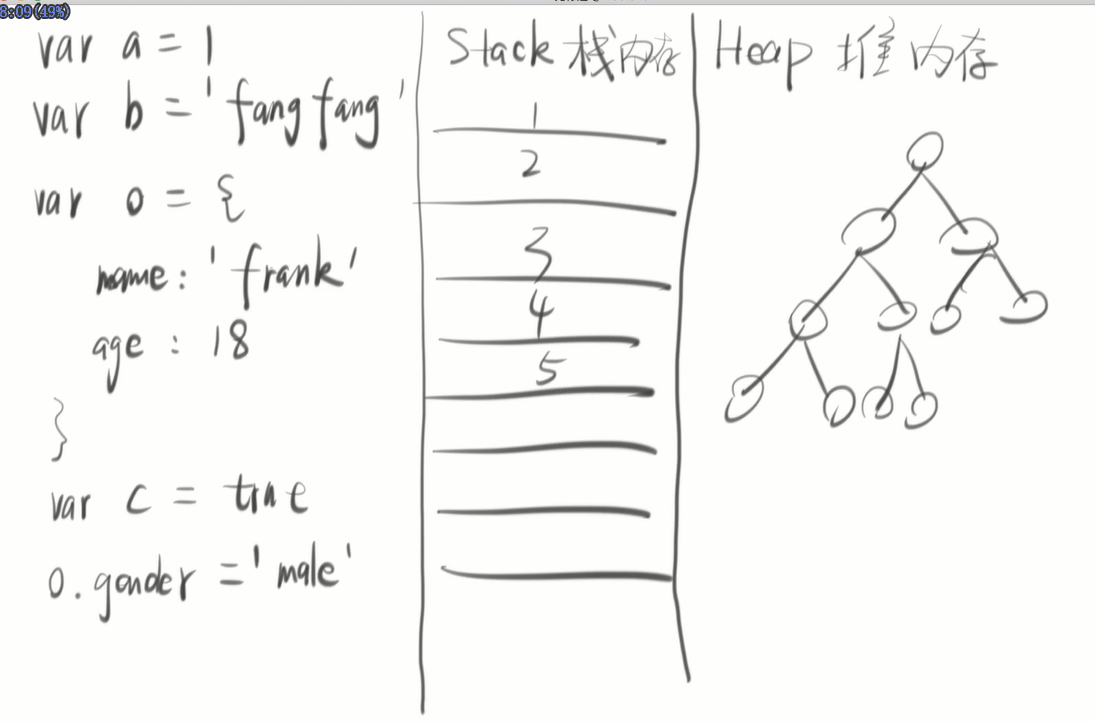 8:09(49%)
var a = 1
var b = 'fangfang'
var o = {
name: 'frank'
age : 18
}
var c = true
o.gender = 'male'
Stack 栈内存
1
2
3
4
5
Heap 堆内存